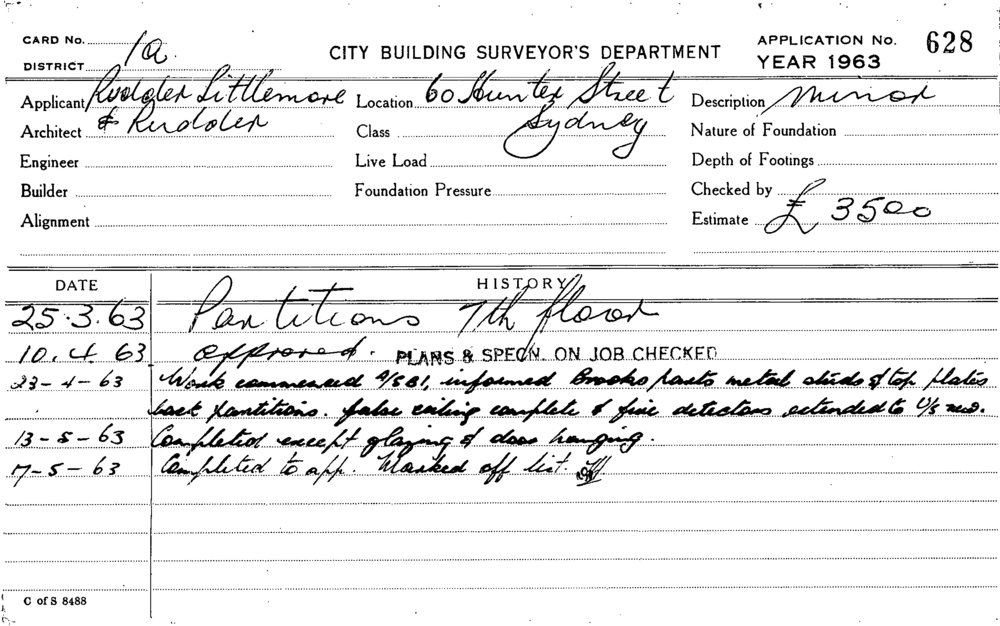 CARD No. 1a.
DISTRICT
CITY BUILDING SURVEYOR'S DEPARTMENT
APPLICATION No. 628
YEAR 1963
Applicant Rudder Littlemore
Architect & Rudder
Engineer
Builder
Alignment
Location 60 Hunter Street
Class Sydney
Live Load
Foundation Pressure
Description Minor
Nature of Foundation
Depth of Footings
Checked by
Estimate £ 3500
DATE HISTORY
25.3.63 Partitions 7th floor
10.4.63 approved. PLANS & SPECN. ON JOB CHECKED
23-4-63 Work commenced informed Brooks metal studs & top plates
partitions. false ceiling complete & fire detectors extended to U/S
13-5-63 Completed except glazing & door hanging.
7-5-63 Completed to app. Marked off list.
C of S 8488